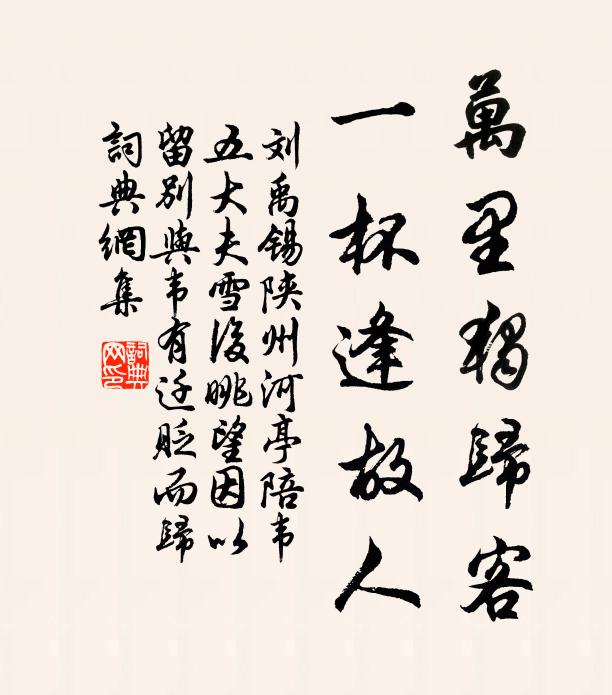 萬里獨歸客
一杯逢故人
刘禹锡陕州河亭陪韦
五大夫雪後眺望因以
留别與韦有迁贬而歸
詞典網集
詞典网印